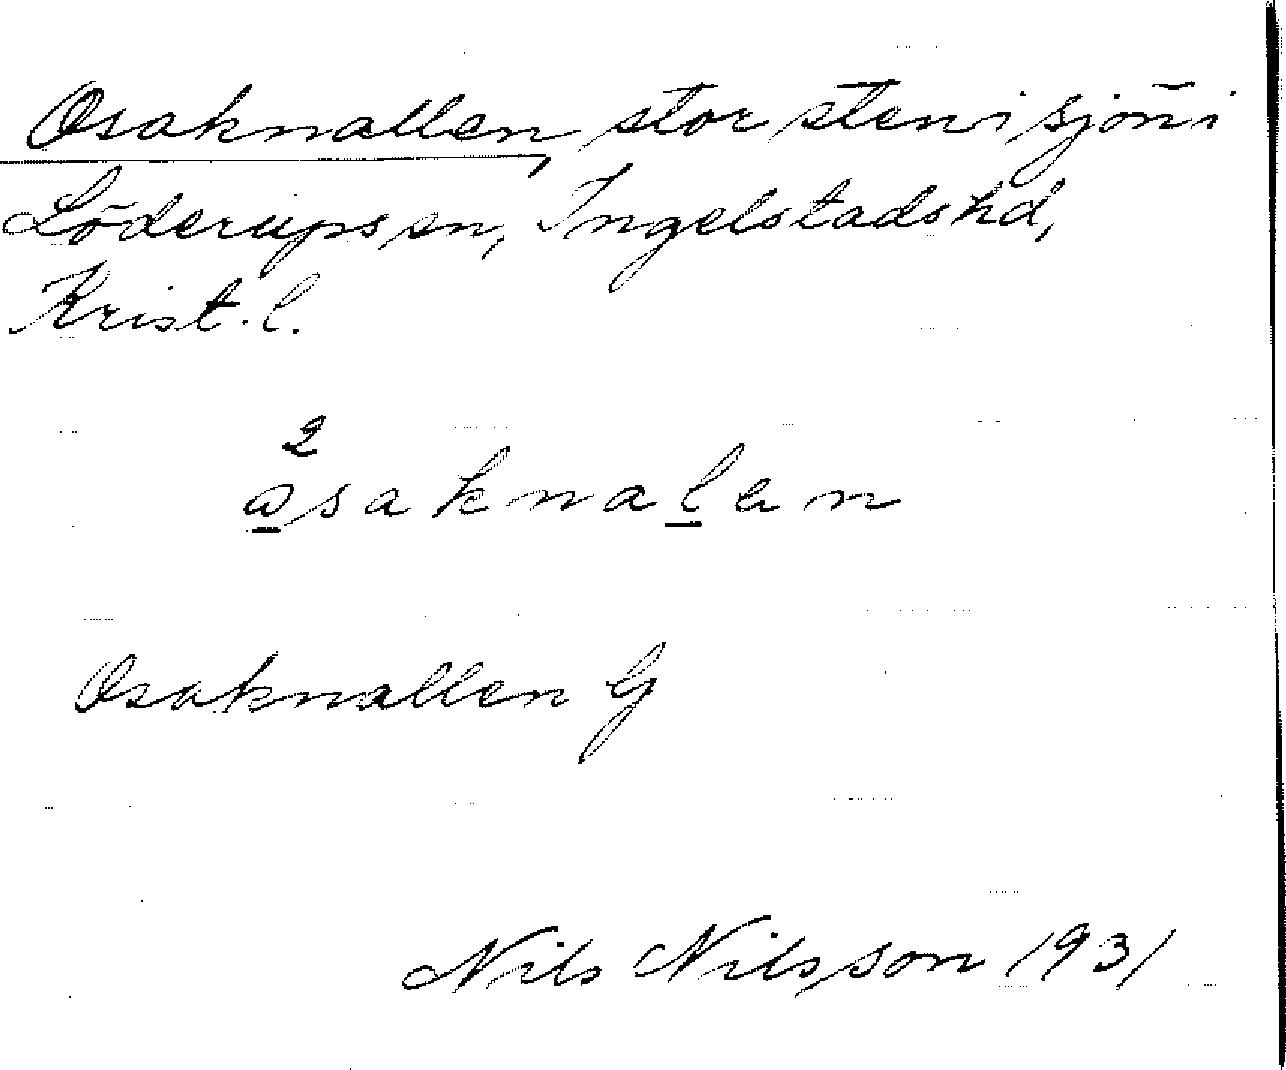 Osaknallen, stor sten i sjön i
Löderups sn, Ingelstads hd,
Krist. l.
2
ωsaknalen
Osaknallen G
Nils Nilsson 1931